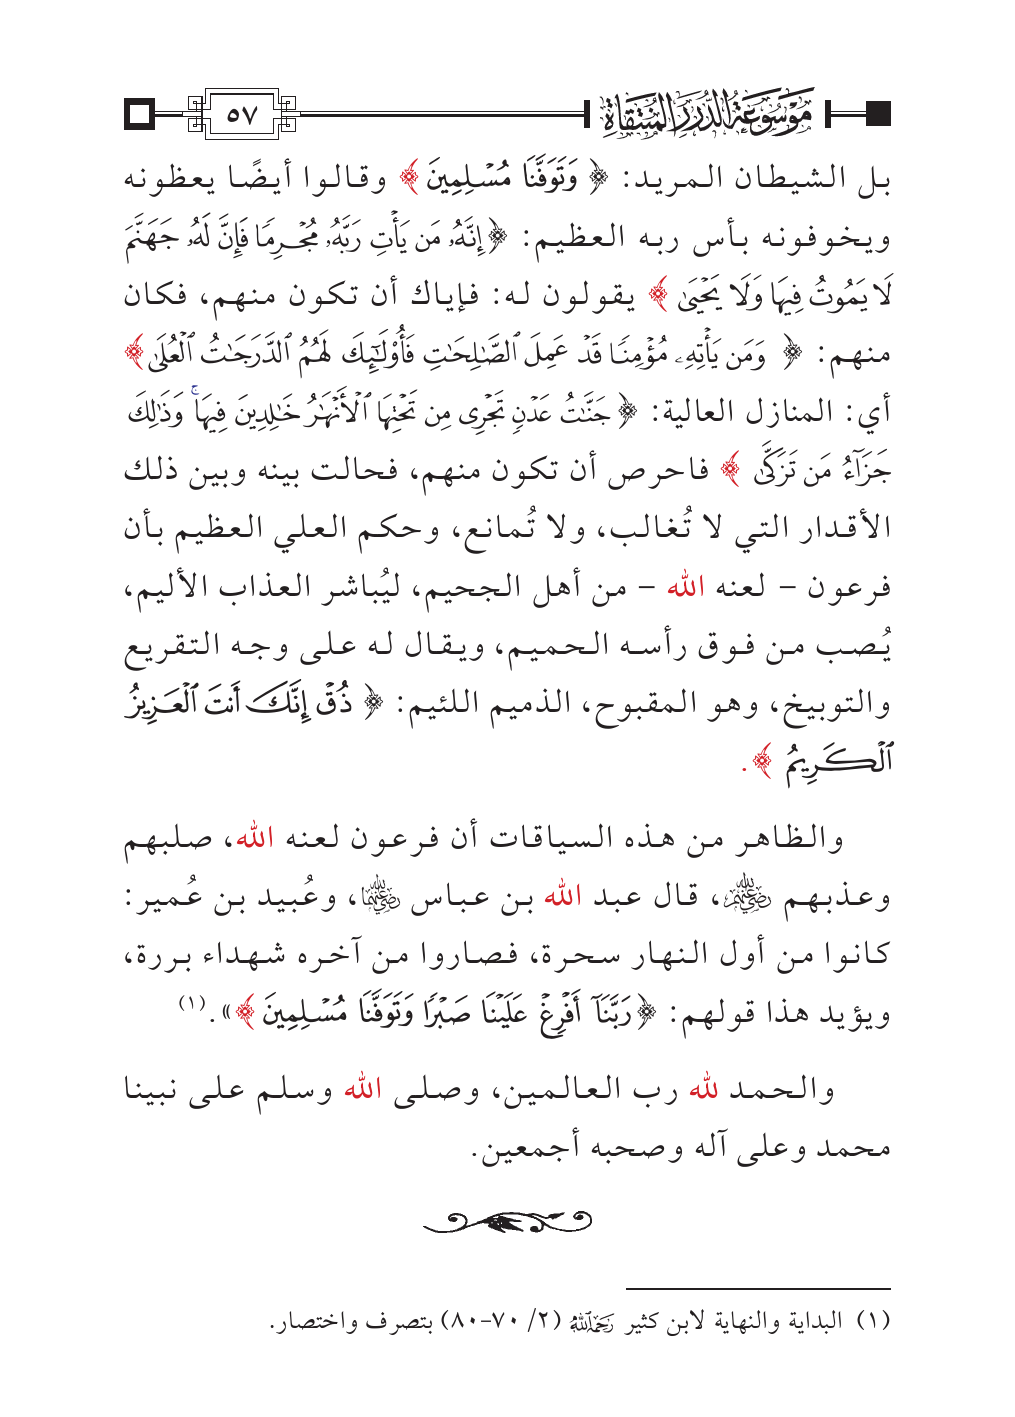 موسوعة الدرر المنتقاة
٥٧
بل الشيطان المريد: ﴿ وَتَوَفَّنَا مُسْلِمِينَ ﴾ وقالوا أيضًا يعظونه
ويخوفونه بأس ربه العظيم: ﴿إِنَّهُۥ مَن يَأْتِ رَبَّهُۥ مُجْرِمًا فَإِنَّ لَهُۥ جَهَنَّمَ
لَا يَمُوتُ فِيهَا وَلَا يَحْيَىٰ ﴾ يقولون له: فإياك أن تكون منهم، فكان
منهم: ﴿ وَمَن يَأْتِهِۦ مُؤْمِنًا قَدْ عَمِلَ ٱلصَّٰلِحَٰتِ فَأُو۟لَٰٓئِكَ لَهُمُ ٱلدَّرَجَٰتُ ٱلْعُلَىٰ﴾
أي: المنازل العالية: ﴿جَنَّٰتُ عَدْنٍ تَجْرِى مِن تَحْتِهَا ٱلْأَنْهَٰرُ خَٰلِدِينَ فِيهَا ۚ وَذَٰلِكَ
جَزَآءُ مَن تَزَكَّىٰ ﴾ فاحرص أن تكون منهم، فحالت بينه وبين ذلك
الأقدار التي لا تُغالب، ولا تُمانع، وحكم العلي العظيم بأن
فرعون – لعنه الله – من أهل الجحيم، ليُباشر العذاب الأليم،
يُصب من فوق رأسه الحميم، ويقال له على وجه التقريع
والتوبيخ، وهو المقبوح، الذميم اللئيم: ﴿ ذُقْ إِنَّكَ أَنتَ ٱلْعَزِيزُ
ٱلْكَرِيمُ ﴾.
والظاهر من هذه السياقات أن فرعون لعنه الله، صلبهم
وعذبهم ﵃، قال عبد الله بن عباس ﵄، وعُبيد بن عُمير:
كانوا من أول النهار سحرة، فصاروا من آخره شهداء بررة،
ويؤيد هذا قولهم: ﴿رَبَّنَآ أَفْرِغْ عَلَيْنَا صَبْرًا وَتَوَفَّنَا مُسْلِمِينَ ﴾». (١)
والحمد لله رب العالمين، وصلى الله وسلم على نبينا
محمد وعلى آله وصحبه أجمعين.
(١) البداية والنهاية لابن كثير ﵀ (٢/ ٧٠-٨٠) بتصرف واختصار.